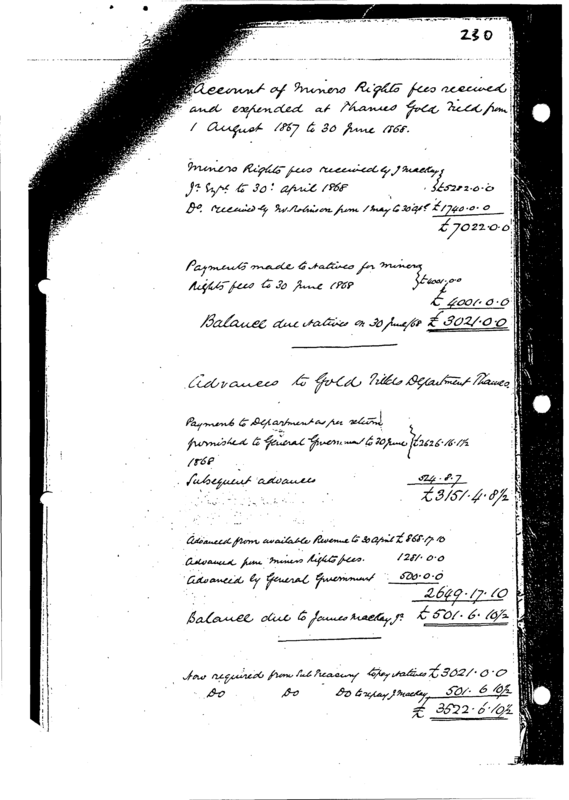 230
Account of Miners Rights fees received
and expended at Thames Gold Field from
1 August 1867 to 30 June 1868.
Miners Rights fees received by J Mackay
Jr to 30 April 1868 £5282.0.0
Do. received by Mr Robinson from 1 May to 30 £1740.0.0
£7022.0.0
Payments made to Natives for miners
Rights fees to 30 June 1868 £4001.0.0
£4001.0.0
Balance due Natives on 30 June/68 £3021.0.0
Advances to Gold Fields Department Thames
Payments to Department as per return
furnished to General Government to 30 June £2626.16.1½
1868
Subsequent advances 524.8.7
£3151.4.8½
Advanced from available Revenue to 30 April £868.17.10
Advanced from Miners Rights fees. 1281.0.0
Advanced by General Government 500.0.0
2649.17.10
Balance due to James Mackay Jr £501.6.10½
Now required from Sub Treasury to pay Natives £3021.0.0
Do Do Do to repay J Mackay 501.6.10½
£3522.6.10½